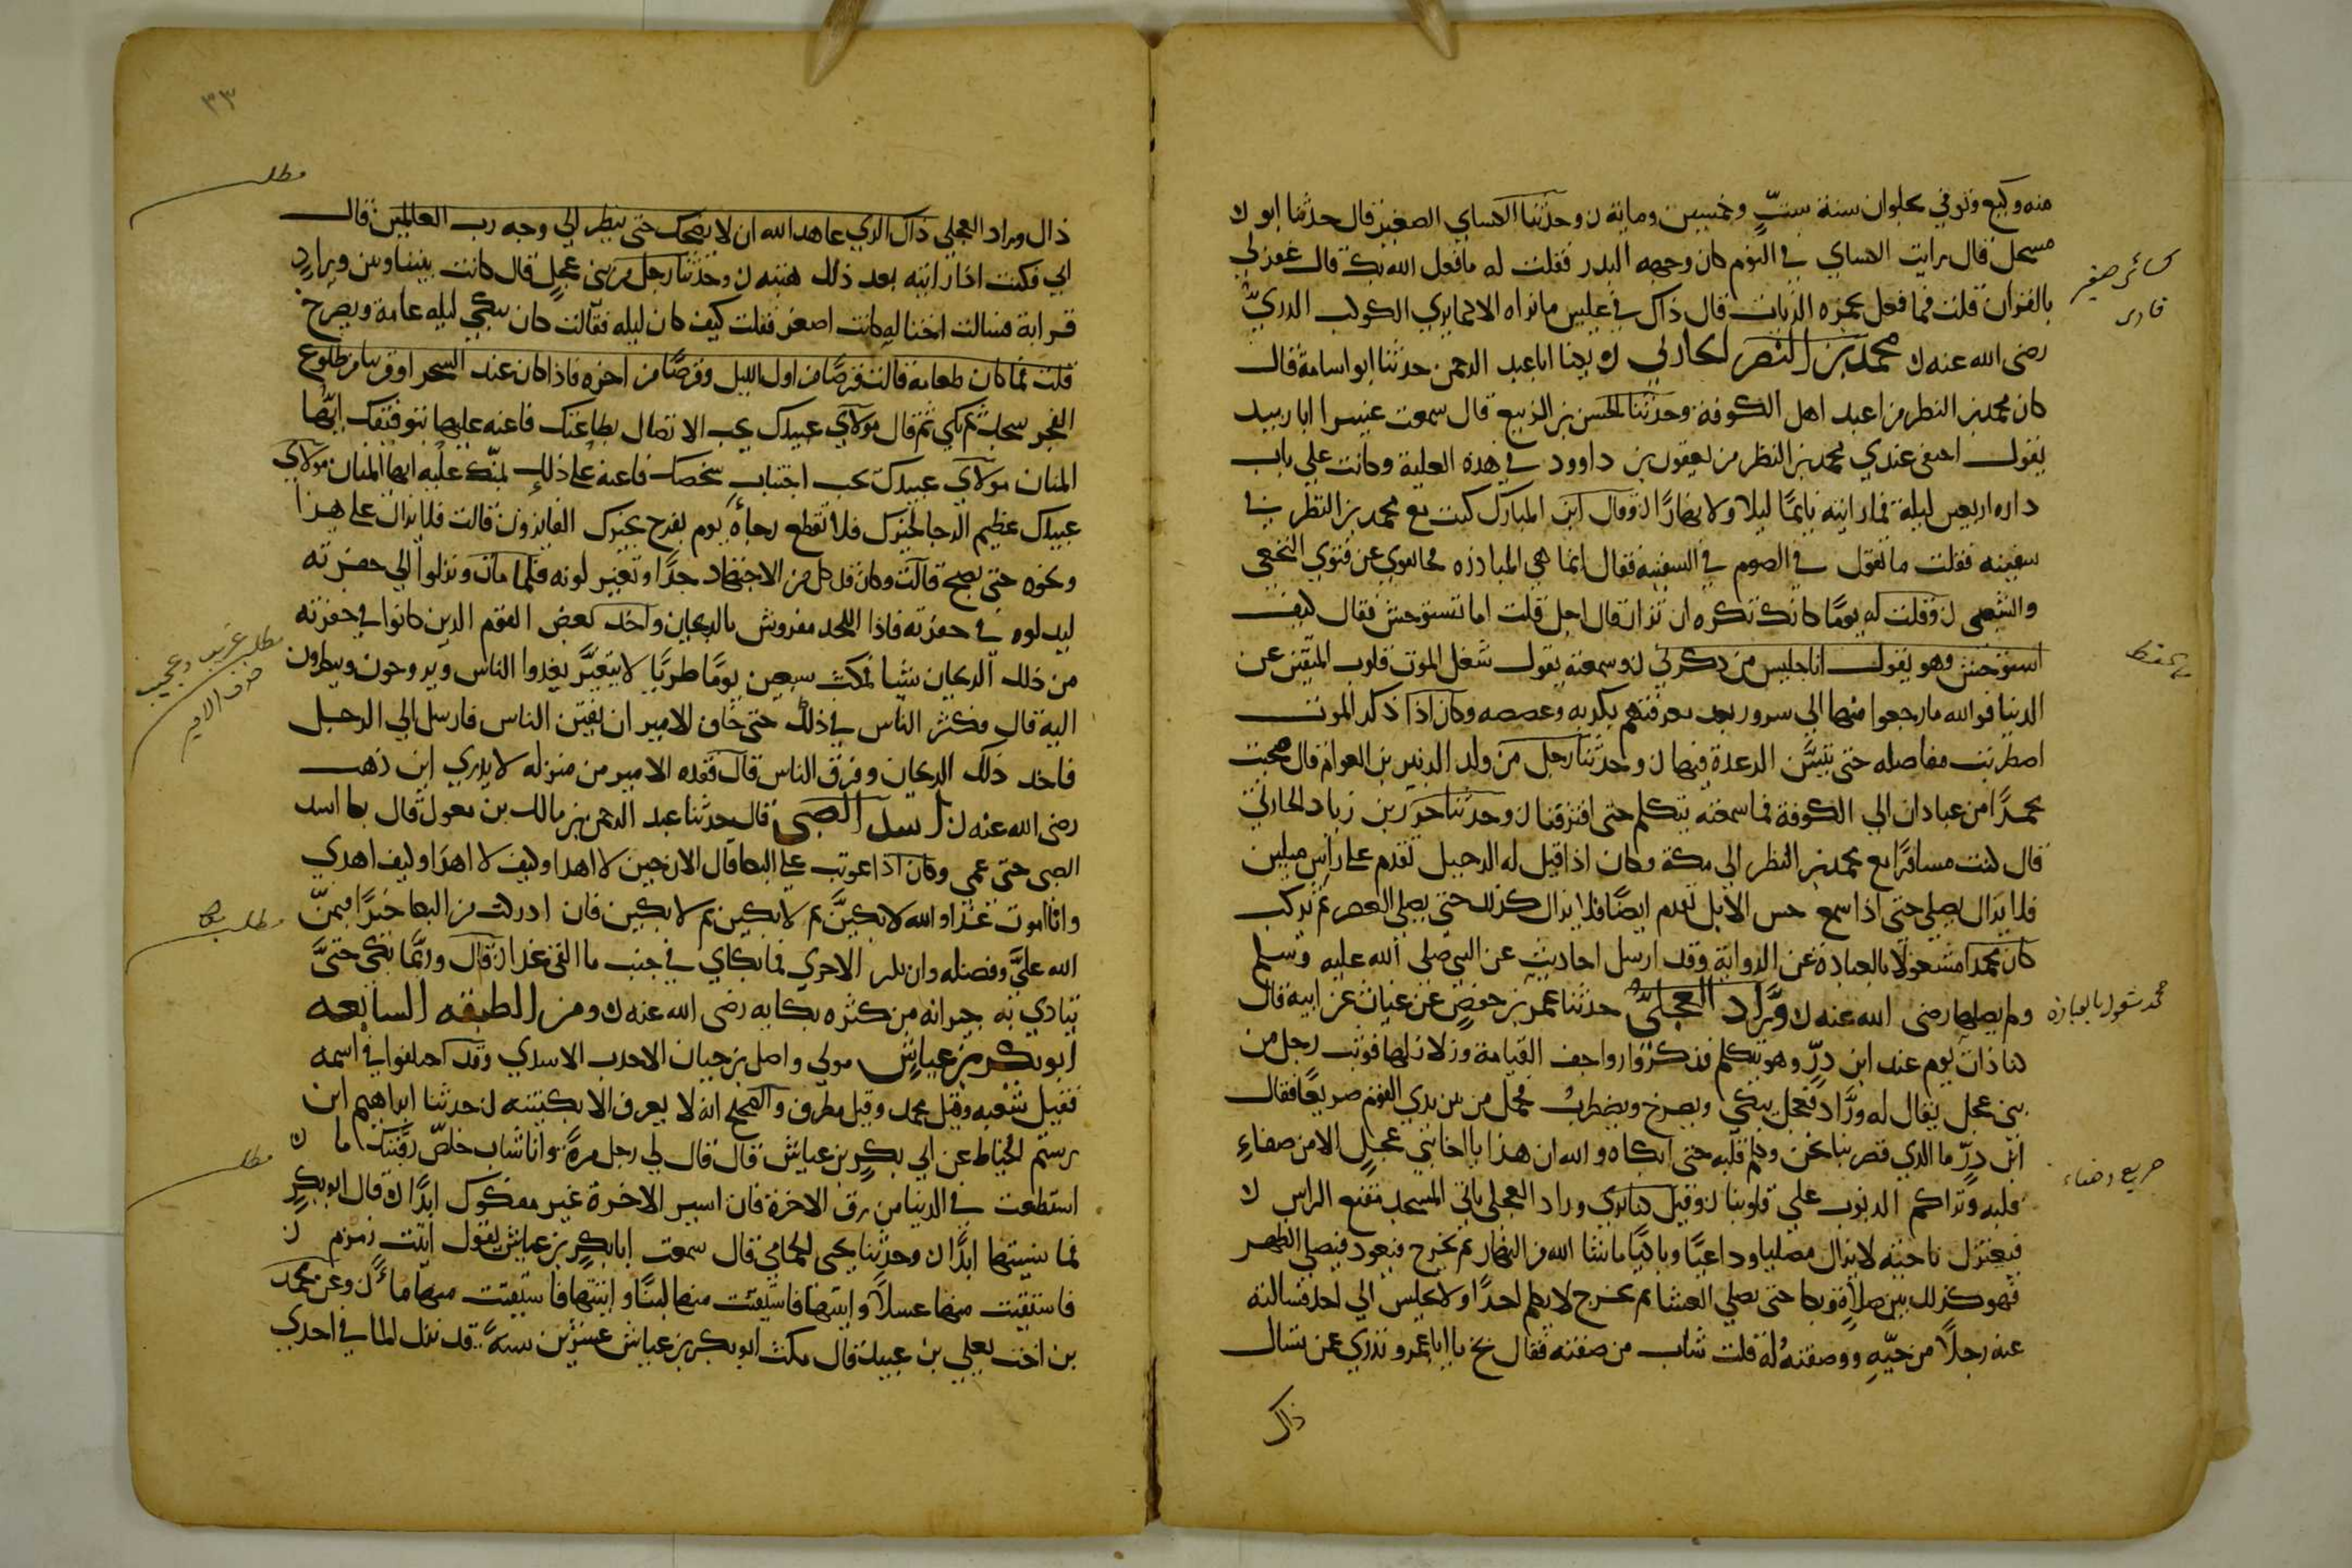 منه وكيع وتوفي بحلوان سنة ستٍّ وخمسين وماية ن وحدثنا الكساي الصغير قال حدثنا ابو ن
مسحل قال رايت الكساي في النوم كان وجهه البدر فقلت له ما فعل الله بك قال غفر لي
بالقران قلت فما فعل بحمزه الزيات قال ذاك في عليين ما نراه الا كما يري الكوكب الدريّ
رضى الله عنه ن محمد بن النضر الحارثي ن يكنا ابا عبد الرحمن حدثنا ابو اسامة قال
كان محمد بن النظر من اعبد اهل الكوفة وحدثنا الحسن بن الربيع قال سمعت عبثرا ابا زبيد
يقول اختفى عندي محمد بن النظر من يعقوب بن داوود في هذه العلية وكانت علي باب
داره اربعين ليلة فما رايته نايمًا ليلا ولا نهارًا ن وقال ابن المبارك كنت مع محمد بن النظر في
سفينه فقلت ما تقول في الصوم في السفينه فقال انما هي المبادره فحا بفوي غير فتوي النخعى
والشعبى ن وقلت له يومًا كانك تكره ان تزار قال اجل قلت اما تستوحش فقال كيف
استوحش وهو يقول انا جليس من ذكرني ن وسمعته يقول شغل الموت قلوب المتقين عن
الدنيا فوالله ما رجعوا منها الي سرور بعد معرفتهم بكربه وغصصه وكان اذا ذكر الموت
اضطربت مفاصله حتى تتبيَّن الرعدة فيها ن وحدثنا رجل من ولد الزبير بن العوام قال صحبت
محمدًا من عبادان الي الكوفة فما سمعته يتكلم حتى افترقنا ن وحدثنا حور بن زياد الحارثي
قال كنت مسافرًا مع محمد بن النظر الي مكة وكان اذا قيل له الرحيل تقدم على راس ميلين
فلا يزال يصلي حتى اذا سمع حس الابل تقدم ايضًا فلا يزال كذلك حتى يصلي العصر ثم يركب
كان محمدا مشغولا بالعبادة عن الرواية وقد ارسل احاديث عن النبي صلى الله عليه وسلم
ولم يصلها رضى الله عنه ن ورَّاد العجليّ حدثنا عمر بن حفصٍ عن غياث عن ابيه قال
كنا ذات يوم عند ابن درٍّ وهو يتكلم فذكروا رواجف القيامة وزلازلها فوثب رجل من
بني عجل يقال له ورَّاد فجعل يبكي ويصرخ ويضطرب فحمل من بين يدي القوم صريعًا فقال
ابن درٍّ ما الذي قصر بنا نحن وكلم قلبه حتى ابكاه والله ان هذا يا اخا بني عجلٍ الا من صفاءِ
قلبه وتراكم الذنوب علي قلوبنا ن وقيل كنا نري وراد العجلى ياتي المسجد مقنع الراس ن
فيعتزل ناحيته لا يزال مصليا وداعيًا وباكيًا ما شا الله من النهار ثم يخرج فيعود فيصلي الظهر
فهو كذلك بين صلاةٍ وبكا حتى يصلي العشا ثم يخرج لا يكلم احدًا ولا يجلس الي احد فسالته
عنه رجلاً من حيّهِ ووصفتهُ له قلت شاب من صفته فقال بخ يا ابا عمرو تدري عمن تسال
ذاك
كسائي صغير
قارى
محمد مشغول بالعبادة
صريع
٣٣
ذاك وراد العجلي ذاك الذي عاهد الله ان لا يضحك حتى ينظر الي وجه رب العالمين قال
ابي فكنت اذا رايته بعد ذلك هبته ن وحدثنا رجل من بني عجلٍ قال كانت بيننا وبين ورادٍ
قرابة فسالت اختا له كانت اصغر فقلت كيف كان ليله فقالت كان يبكي ليله عامة ويصرخ
قلت فما كان طعامه قالت قرصًا من اول الليل وقرصًا من اخره فاذا كان عند السحر او قريبا من طلوع
الفجر سجد ثم بكي ثم قال مولاي عبدك يحب الاتصال بطاعتك فاعنه عليها بتوفيقك ايّها
المنان مولاي عبدك يحب اجتناب سخطك فاعنه على ذلك بمنّك عليه ايها المنان مولاي
عبدك عظيم الرجا لخيرك فلا تقطع رجاهُ يوم يفرح بخيرك الفايزون قالت فلا يزال على هذا
ونحوه حتى يصبح قالت وكان قد كل من الاجتهاد جدًا وتغير لونه فلما مات ونزلوا الي حفرته
ليدلوه في حفرته فاذا اللحد مفروش بالريحان واخذ بعض القوم الذين كانوا في حفرته
من ذلك الريحان شيا فمكث سبعين يومًا طريًا لا يتغيَّر يغدوا الناس ويروحون وينظرون
اليه قال فكثر الناس في ذلك حتى خاف الامير ان يفتتن الناس فارسل الي الرجل
فاخذ ذلك الريحان وفرق الناس قال ففقده الامير من منزله لا يدري اين ذهب
رضى الله عنه ن اسد الضبى قال حدثنا عبد الرحمن بن مالك بن مغول قال بكا اسد
الضبى حتى عمى وكان اذا عوتب على البكا قال الان حين لا اهدا وكيف لا اهدا وكيف اهدي
وانا اموت غدًا والله لابكينَّ ثم لابكين ثم لابكين فان ادركت من البكا خيرًا فبمنّ
الله عليَّ وفضله وان تكن الاخري فما بكاي في جنب ما القى غدا ن قال وربَّما بكى حتىَّ
يتادي به جيرانه من كثره بكايه رضى الله عنه ن ومن الطبقه السابعه
ابو بكر بن عياش مولي واصل بن حيان الاحدب الاسدي وقد اختلفوا في اسمه
فقيل شعبه وقيل محمد وقيل مطرف والصحيح انه لا يعرف الا بكنيته ن حدثنا ابراهيم ابن
رستم الخياط عن ابي بكرٍ بن عياش قال قال لي رجل مرةً وانا شاب خلصّ رقبتك ما ن
استطعت في الدنيا من رق الاخرة فان اسير الاخرة غير مفكوك ابدًا ن قال ابو بكرٍ
فما نسيتها ابدًا ن وحدثنا يحيى الحماني قال سمعت ابا بكرٍ بن عياش يقول اتيت زمزم ن
فاستقيت منها عسلاً واتيتها فاستقيت منها لبنًا واتيتها فاستقيت منها ماءً ن وعن محمد
بن اخت يعلي بن عبيد قال مكث ابو بكر بن عياش عشرين سنةً قد نزل الما في احدي
مطلب
مطلب غريب وعجيب
خوف الامير
مطلب بكا
مطلب